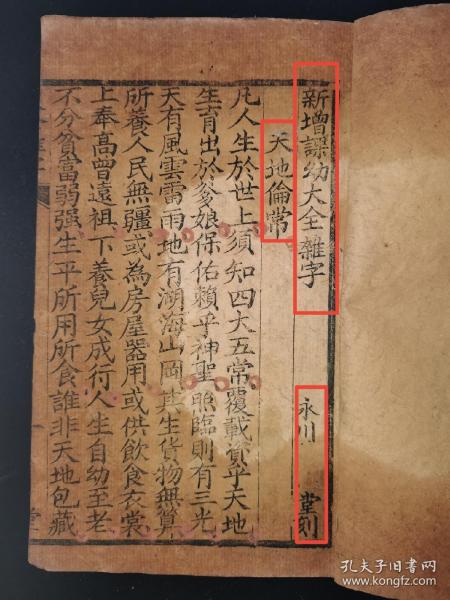 新增課幼大全雜字
永川 堂刻
天地倫常
凡人生於世上須知四大五常覆載資乎天地
生育出於爹娘保佑賴乎神聖照臨則有三光
天有風雲雷雨地有湖海山岡其生貨物無算
所養人民無疆或為房屋器用或供飲食衣裳
上奉高曾遠祖下養兒女成行人生自幼至老
不分貧富弱强生平所用所食誰非天地包藏
孔夫子旧书网
www.kongfz.com